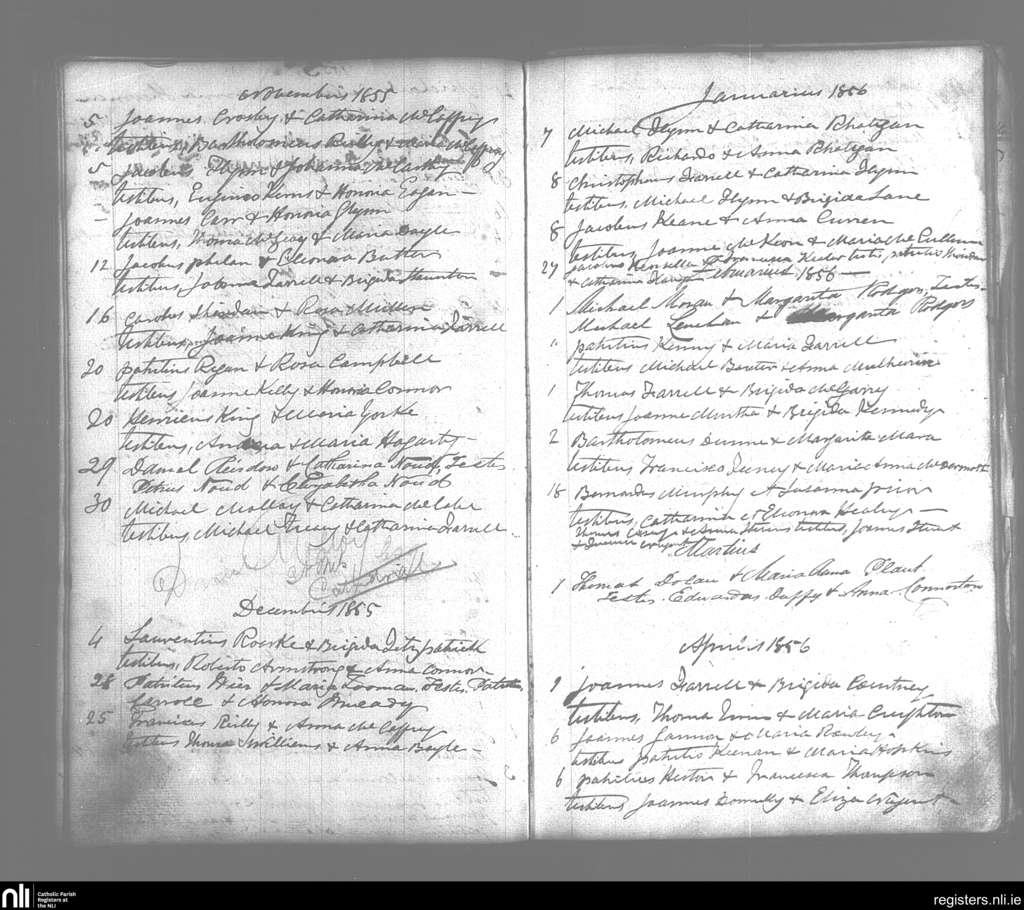 Novembris 1855
5 Joannes Crosby & Catharina McCaffrey
testibus, Bartholomeus Reilly & McCaffrey
5 Jacobus Flynn & Johanna McCarthy
testibus, Eugenio Kerns & Honora Eagan —
– Joannes Carr & Honora Glynn
testibus, Thoma & Maria Doyle
12 Jacobus phelan & Eleonora Butler
testibus, Farrell & Brigida Staunton
16 Carolus Sheridan & Rosa
testibus, Joanne King & Catharina Farrell
20 patritius Regan & Rosa Campbell
testibus, Joanne Kelly & Honoria Connor
20 Henricus King & Maria Yorke
testibus, Andrea & Maria Hagarty –
29 Daniel & Catharina Noud, Testes
Petrus Noud & Elizabetha Noud
30 Michael Molloy & Catharina McCabe
testibus, Michael Treacy & Catharina Farrell
Decembris 1855
4 Laurentius Roarke & Brigida Fitzpatrick
testibus, Roberto Armstrong & Anna Connor
28 Patritius Weir & Maria Testes, Patritius
Carroll & Honora
25 Franciscus Reilly & Anna McCaffrey
testibus Thoma Williams & Anna Boyle –
Januarius 1856
7 Michael Flynn & Catharina Rhatigan
testibus, Richardo & Anna Rhatigan
8 Christophorus Farrell & Catharina Flynn
testibus, Michael Flynn & Brigida Lane
8 Jacobus Keane & Anna Curren
testibus, Joanne McKeon & Maria McCullum
27 Jacobus Kinsella & Francisca Keelor testes, patritio
& Catharina
Februarius 1856 —
1 Michael Moran & Margarita Rodgers, Testes–
Michael Lenehan & Margarita Rodgers
" patritius Kenny & Maria Farrell
testibus Michael Baxter & Anna Mulhearin
1 Thomas Farrell & Brigida McGarry
testibus Joanne Murtha & Brigida Kennedy
2 Bartholomeus Dunne & Margarita Mara
testibus, Francisco & Maria Anna McDermott
18 Bernardus Murphy & Susanna prior
testibus, Catharina & Eleonora Healy –
Thomas & Anna testibus, Joannes
& Nugent
Martius
1 Thomas Dolan & Maria Anna Plant
Testes. Edwardus Duffy & Anna Connorton
Aprilis 1856
9 Joannes Farrell & Brigida Courtney
testibus, Thoma & Maria Creighton
6 Joannes Gannon & Maria Hanley
testibus patritio Keenan & Maria Hopkins
6 patritius Heston & Francisca Thompson
testibus Joannes Donnelly & Eliza Nugent
nli
Catholic Parish
Registers at
the NLI
registers.nli.ie